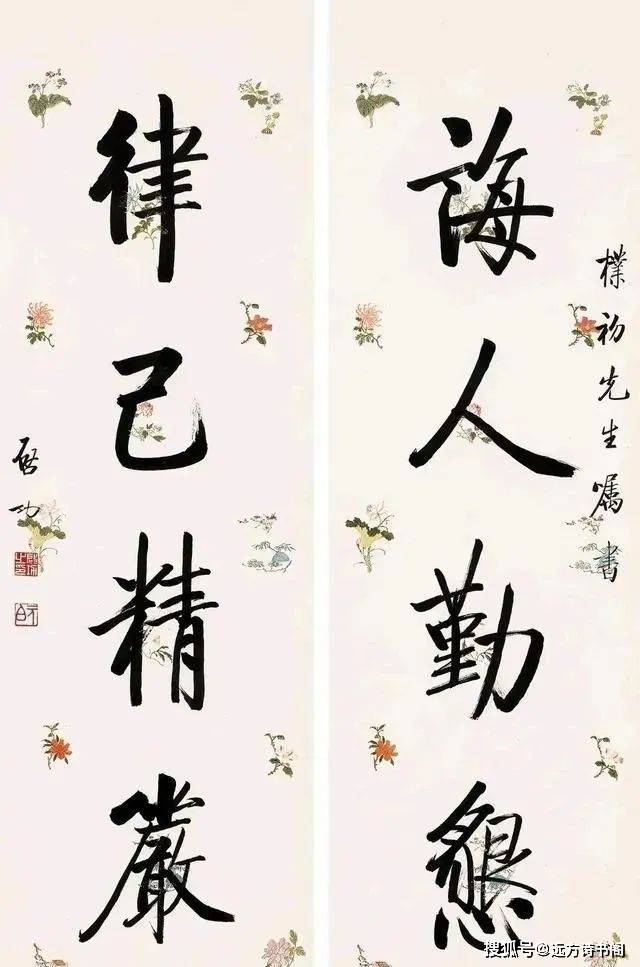 樸初先生嘱書
誨人勤懇
律己精嚴
启功
元白
搜狐号@远方诗书阁